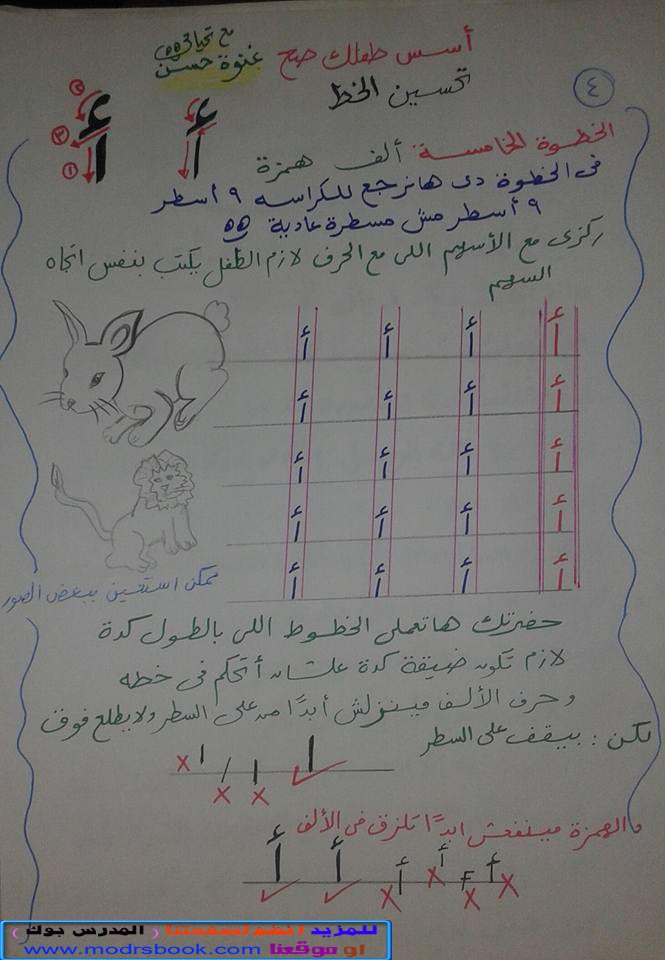 أسس طفلك صح
مع تحياتى
غنوة حسن
تحسين الخط
٤
الخطوة الخامسة ألف همزة
فى الخطوة دى هانرجع للكراسه ٩ أسطر
٩ أسطر مش مسطرة عادية
ركزى مع الأسهم اللى مع الحرف لازم الطفل يكتب بنفس اتجاه
السهم
أ
أ
٢
٣
١
أ أ أ أ
أ أ أ أ
أ أ أ أ
أ أ أ أ
أ أ أ أ
ممكن استعين ببعض الصور
حضرتك هاتعملى الخطوط اللى بالطول كدة
لازم تكون ضيقة كدة علشان أتحكم فى خطه
وحرف الألف مينزلش أبدًا من على السطر ولا يطلع فوق
لكن : بيقف على السطر
ا ا ا ا
والهمزة مينفعش ابدًا تلزق فى الألف
أ أ أ أ أ
للمزيد أنضم لصفحتنا ( المدرس بوك )
www.modrsbook.com او موقعنا